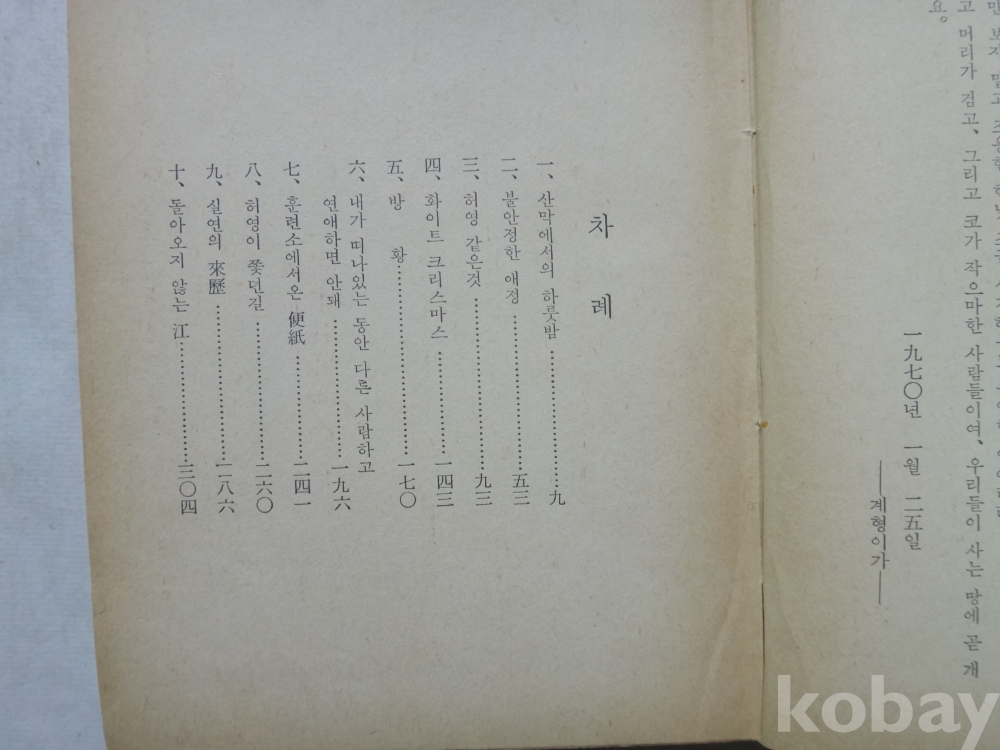 고 머리가 검고、그리고 코가 작으마한 사람들이여、우리들이 사는 땅에 곧 개
요。
一九七〇년 一월 二五일
―계형이가―
차 례
一、산막에서의 하룻밤……………九
二、불안정한 애정……………五三
三、허영 같은것……………九三
四、화이트 크리스마스……………一四三
五、방 황……………一七〇
六、내가 떠나있는 동안 다른 사람하고
연애하면 안돼……………一九六
七、훈련소에서온 便紙……………二四一
八、허영이 쫓던길……………二六〇
九、실연의 來歷……………二八六
十、돌아오지 않는 江……………三〇四
kobay